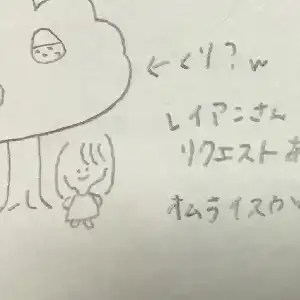 ←くり?w
レイアニさん
リクエストあ
オムライスウ